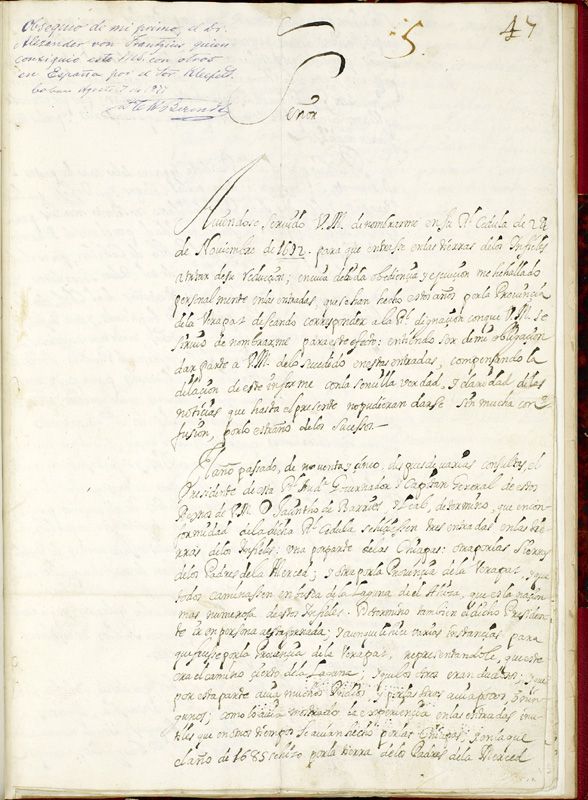 Obsequio de mi primo, el Dr.
Alexander von Frantzius quien
consiguió este MS. con otros
en España por el Dor.
Agosto
C. H. Berendt
5.
47
Señor
Auiendose seruido V.M. de nombrarme en su Rl. Cedula de 24
de Nouiembre de 1692. para que entrasse en las tierras de los Infieles
a tratar de su reduçion; en cuia debida obediençia, y execuçion me he hallado
personalmente en las entradas, que se han hecho estos años por la Prouinçia
de la Verapaz deseando corresponder a la Rl. dignaçion con que V.M. se
siruio de nombrarme para este efeto; entiendo ser de mi obligaçion
dar parte a V.M. de lo suçedido en estas entradas, compensando la
dilaçion de este informe con la sençilla verdad, y claridad de las
notiçias que hasta el presente no pudieran darse sin mucha con-
fusion, por lo estraño de los suçessos.
El año passado, de nouenta y çinco, despues de varias consultas, el
Presidente de esta Rl. Auda. Gouernador y Capitan General de estos
Reynos de V.M. D Jaçintho de Barrios, Leal, determino, que en con-
formidad de la dicha Rl. Cedula se hiziessen tres entradas en las tie-
rras de los Infieles: vna por parte de las Chiapas: otra por las Sierras
de los Padres de la Merced; y otra por la Prouinçia de la Verapaz, y que
todos caminassen en busca de la laguna de el Ahiza, que es la naçion
mas numerosa de estos Infieles. Determino tambien el dicho Presiden-
te ir en persona a esta jornada; y aunque le hiçe varias instançias para
que fuesse por la Prouinçia de la Verapaz, representandole, que este
era el camino çierto de la Laguna; y que los otros eran dudosos, y que
por esta parte auia muchos Indios, y por las otras auia pocos, o nin-
gunos; como lo auia mostrado la experiençia en las entradas inu-
tiles que en otros tiempos se auian hecho por las Chiapas, y en la que
el año de 1685 se hizo por la tierra de los Padres de la Merced